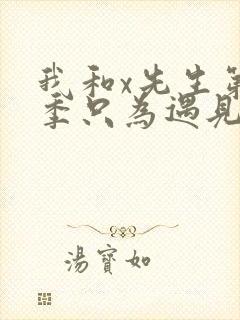 我和x先生第
季只為遇見
湯寶如